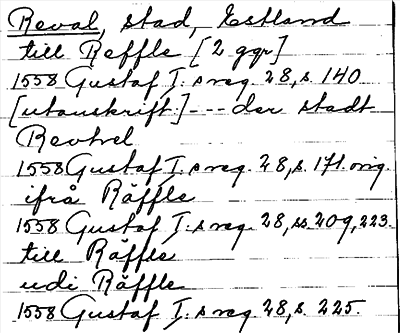 Reval, stad, Estland
till Reffle [2 ggr]
1558 Gustaf I:s reg. 28, s. 140
[utanskrift:] --- der stadt
Revhel
1558 Gustaf I:s reg. 28, s. 171. orig.
ifrå Räffle
1558 Gustaf I:s reg. 28, ss. 209, 223.
till Räffle
udi Räffle
1558 Gustaf I:s reg. 28, s. 225.